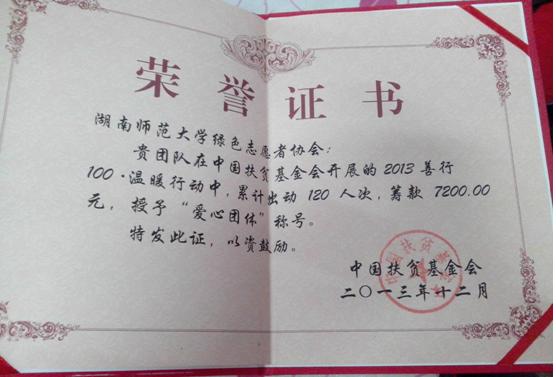 荣誉证书
湖南师范大学绿色志愿者协会：
贵团队在中国扶贫基金会开展的2013善行
100·温暖行动中，累计出动120人次，筹款7200.00
元，授予“爱心团体”称号。
特发此证，以资鼓励。
中国扶贫基金会
二〇一三年十二月